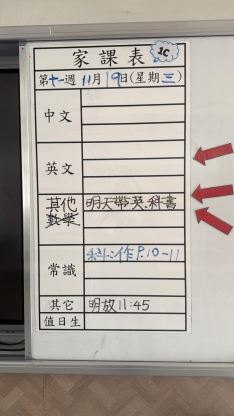 家課表 1C
第十一週 11月19日(星期三)
中文
英文
其他 明天帶英.科書
數學
常識 科:作P.10-11
其它 明放11:45
值日生